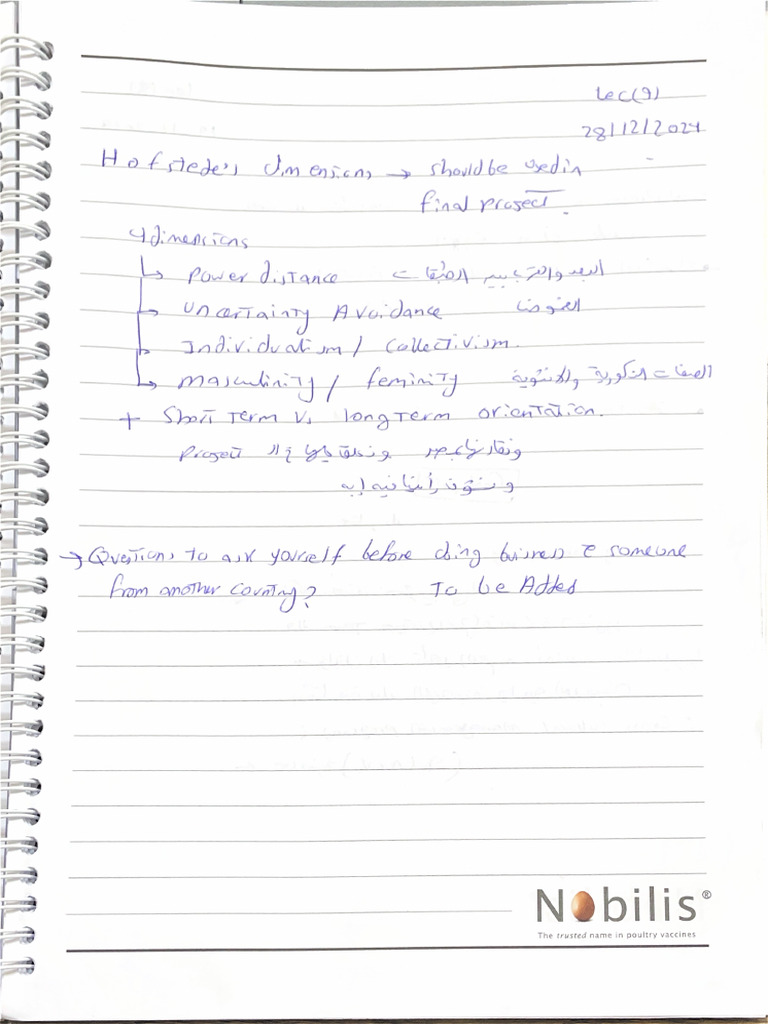 Lec(9)
28/12/2024
Hofstede's dimensions → should be used in
final project.
4 dimensions
↳ power distance البعد والتر بين الطبقات
↳ Uncertainty Avoidance الغموض
↳ Individualism / Collectivism.
↳ masculinity / feminity الصفات الذكورية والانثوية
+ Short Term Vs long Term orientation.
ونقارنها بمصر ونطبقها في ال project
ونشوف إيه
→ Questions to ask yourself before doing business c̄ someone
from another country? To be Added
Nobilis®
The trusted name in poultry vaccines